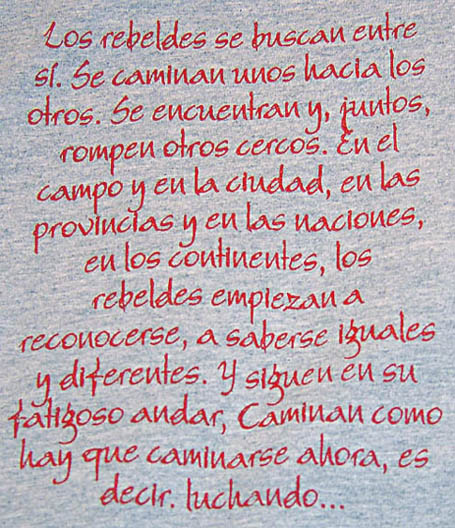 Los rebeldes se buscan entre
sí. Se caminan unos hacia los
otros. Se encuentran y, juntos,
rompen otros cercos. En el
campo y en la ciudad, en las
provincias y en las naciones,
en los continentes, los
rebeldes empiezan a
reconocerse, a saberse iguales
y diferentes. Y siguen en su
fatigoso andar, Caminan como
hay que caminarse ahora, es
decir. luchando...